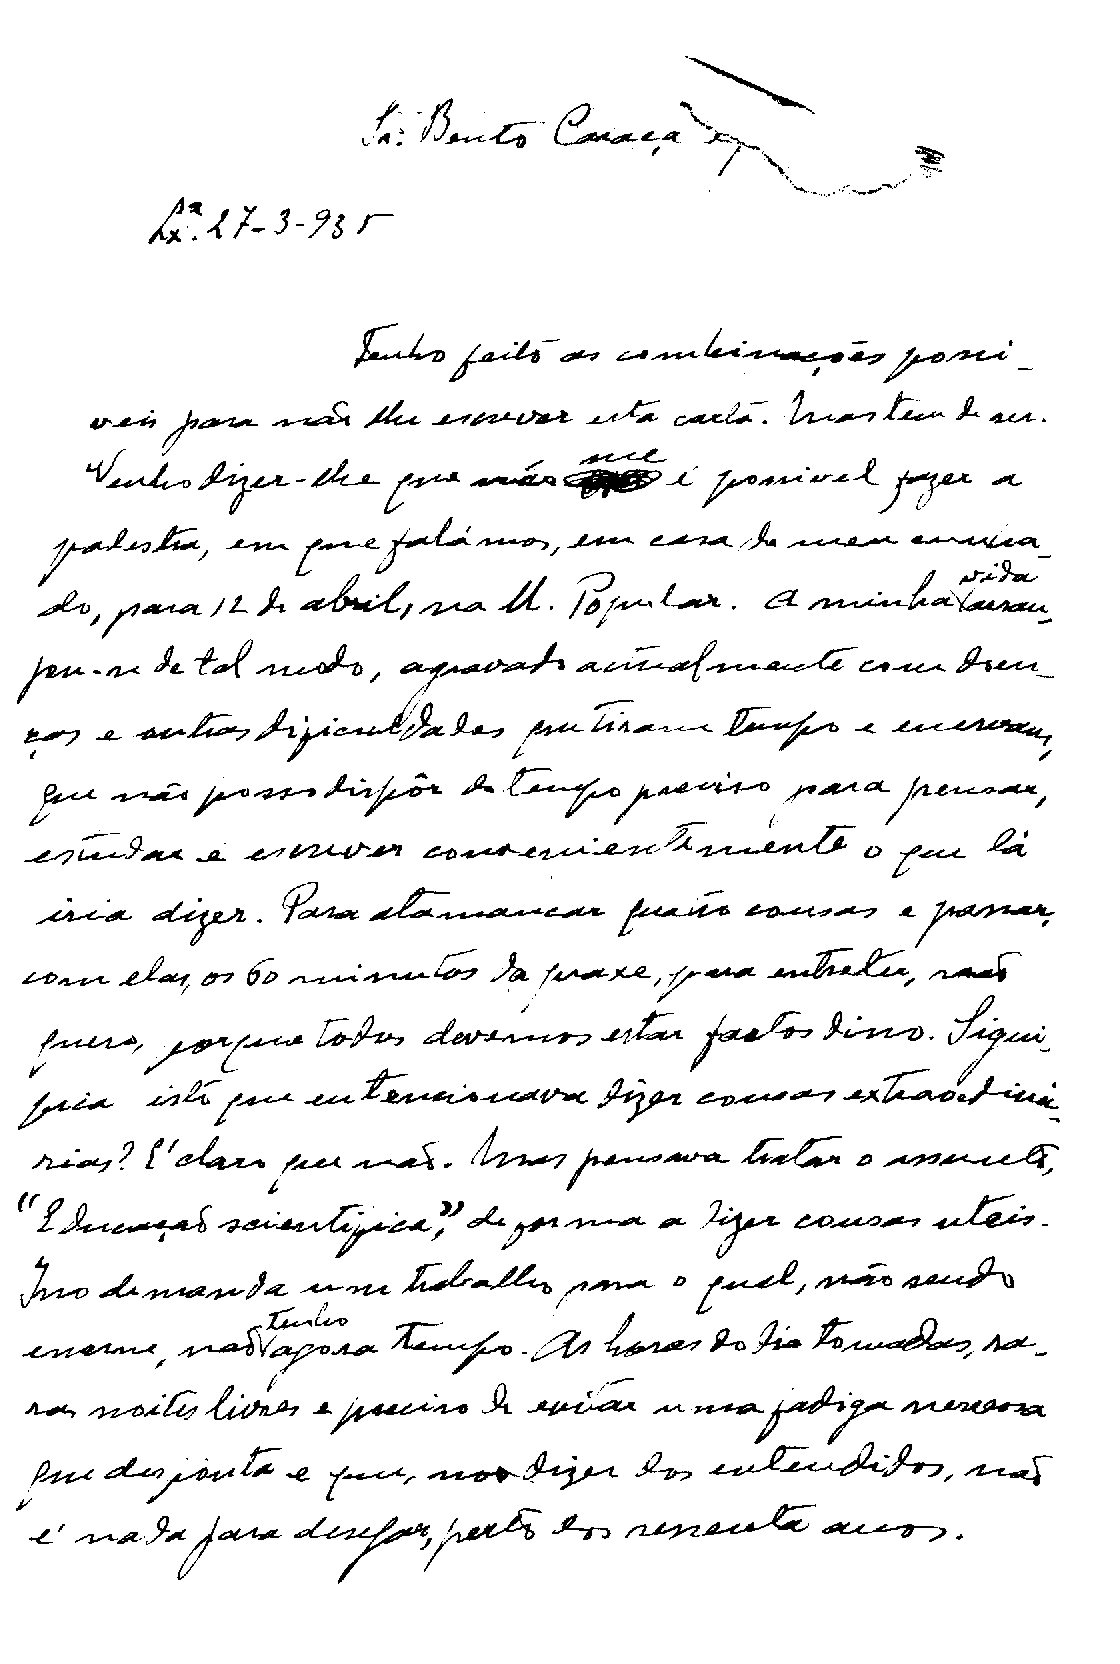 Sr. Bento Caraça
Lx.ª 27-3-935
Tenho feito as combinações possi-
veis para não lhe escrever esta carta. Mas tem de ser.
Venho dizer-lhe que não me é possivel fazer a
palestra, em que falámos, em casa de meu cunha-
do, para 12 de abril, na U. Popular. A minha vida arran-
jou-se de tal modo, agravado actualmente com doen-
ças e outras dificuldades que tiram tempo e enervam,
que não posso dispôr do tempo preciso para pensar,
estudar e escrever convenientemente o que lá
iria dizer. Para atamancar quatro cousas e passar,
com elas, os 60 minutos da praxe, para entreter, não
quero, porque todos devemos estar fartos disso. Signi-
fica isto que eu tencionava dizer cousas extraordiná-
rias? É claro que não. Mas pensava tratar o assunto,
"Educação scientifica", de forma a dizer cousas uteis.
Isso demanda um trabalho para o qual, não sendo
enorme, não tenho agora tempo. As horas do dia tomadas, ra-
ras noites livres e preciso de evitar uma fadiga nervosa
que desponta e que, no dizer dos entendidos, não
é nada para desejar, perto dos sessenta anos.